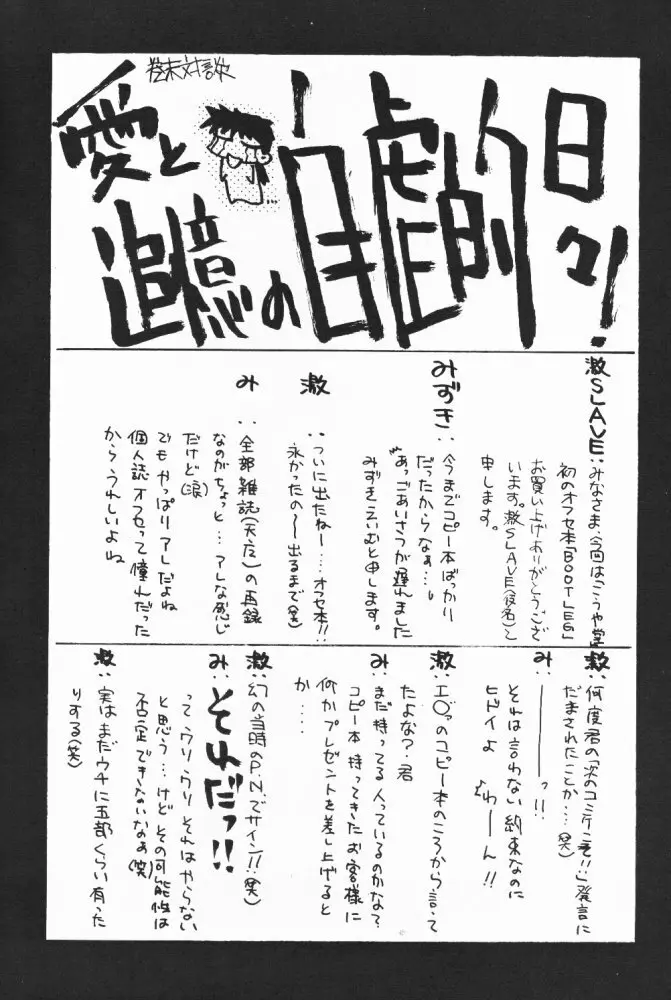 巻末対談
愛と
追憶の
自虐的
日々!
激SLAVE:みなさま今回はこうや堂
初のオフセ本「BOOTLEG」
お買い上げありがとうござ
います。激SLAVE(仮名)と
申します。
みずき:今までコピー本ばっかり
だったからなぁ…。
あっごあいさつが遅れました
みずきえいむと申します。
激:ついに出たねー…オフセ本!!
永かったの〜出るまで(笑)
み:全部雑誌(天た)の再録
なのがちょっと…アレな感じ
だけど(涙)
でもやっぱりアレだよね
個人誌オフセって憧れだった
からうれしいよね
激:何度君の「次のコミケこそ!!」発言に
だまされたことか…(笑)
み:――――っ!!
それは言わない約束なのに
ヒドイよ わーん!!
激:エ○っのコピー本のころから言って
たよな?君
み:まだ持ってる人っているのかな?
コピー本持ってきたお客様に
何かプレゼントを差し上げると
か…
激:幻の当時のP.N.でサイン!!(笑)
み:それだっ!!
ってウソウソそれはやらない
と思う…けどその可能性は
否定できないなぁ(笑)
激:実はまだウチに五部くらい有った
りする(笑)